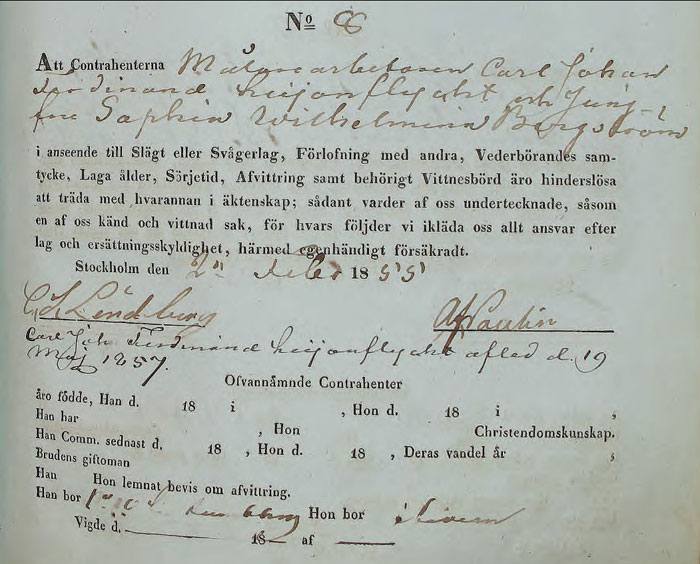 No 8
Att Contrahenterna Målnarbetaren Carl Johan
Ferdinand Leijonflycht och Jung-
frun Sophia Wilhelmina Bergström
i anseende till Slägt eller Svågerlag, Förlofning med andra, Vederbörandes sam-
tycke, Laga ålder, Sörjetid, Afvittring samt behörigt Vittnesbörd äro hinderslösa
att träda med hvarannan i äktenskap; sådant varder af oss undertecknade, såsom
en af oss känd och vittnad sak, för hvars följder vi ikläda oss allt ansvar efter
lag och ersättningsskyldighet, härmed egenhändigt försäkradt.
Stockholm den 2 Febr 1855
Lindberg
Carl Joh Ferdinand Leijonflycht afled d. 19
Maj 1857.
Ofvannämnde Contrahenter
äro födde, Han d. 18 i , Hon d. 18 i ,
Han har , Hon Christendomskunskap.
Han Comm. sednast d. 18 , Hon d. 18 , Deras vandel är ;
Brudens giftoman
Han Hon lemnat bevis om afvittring.
Han bor Hon bor
Vigde d. 18 af